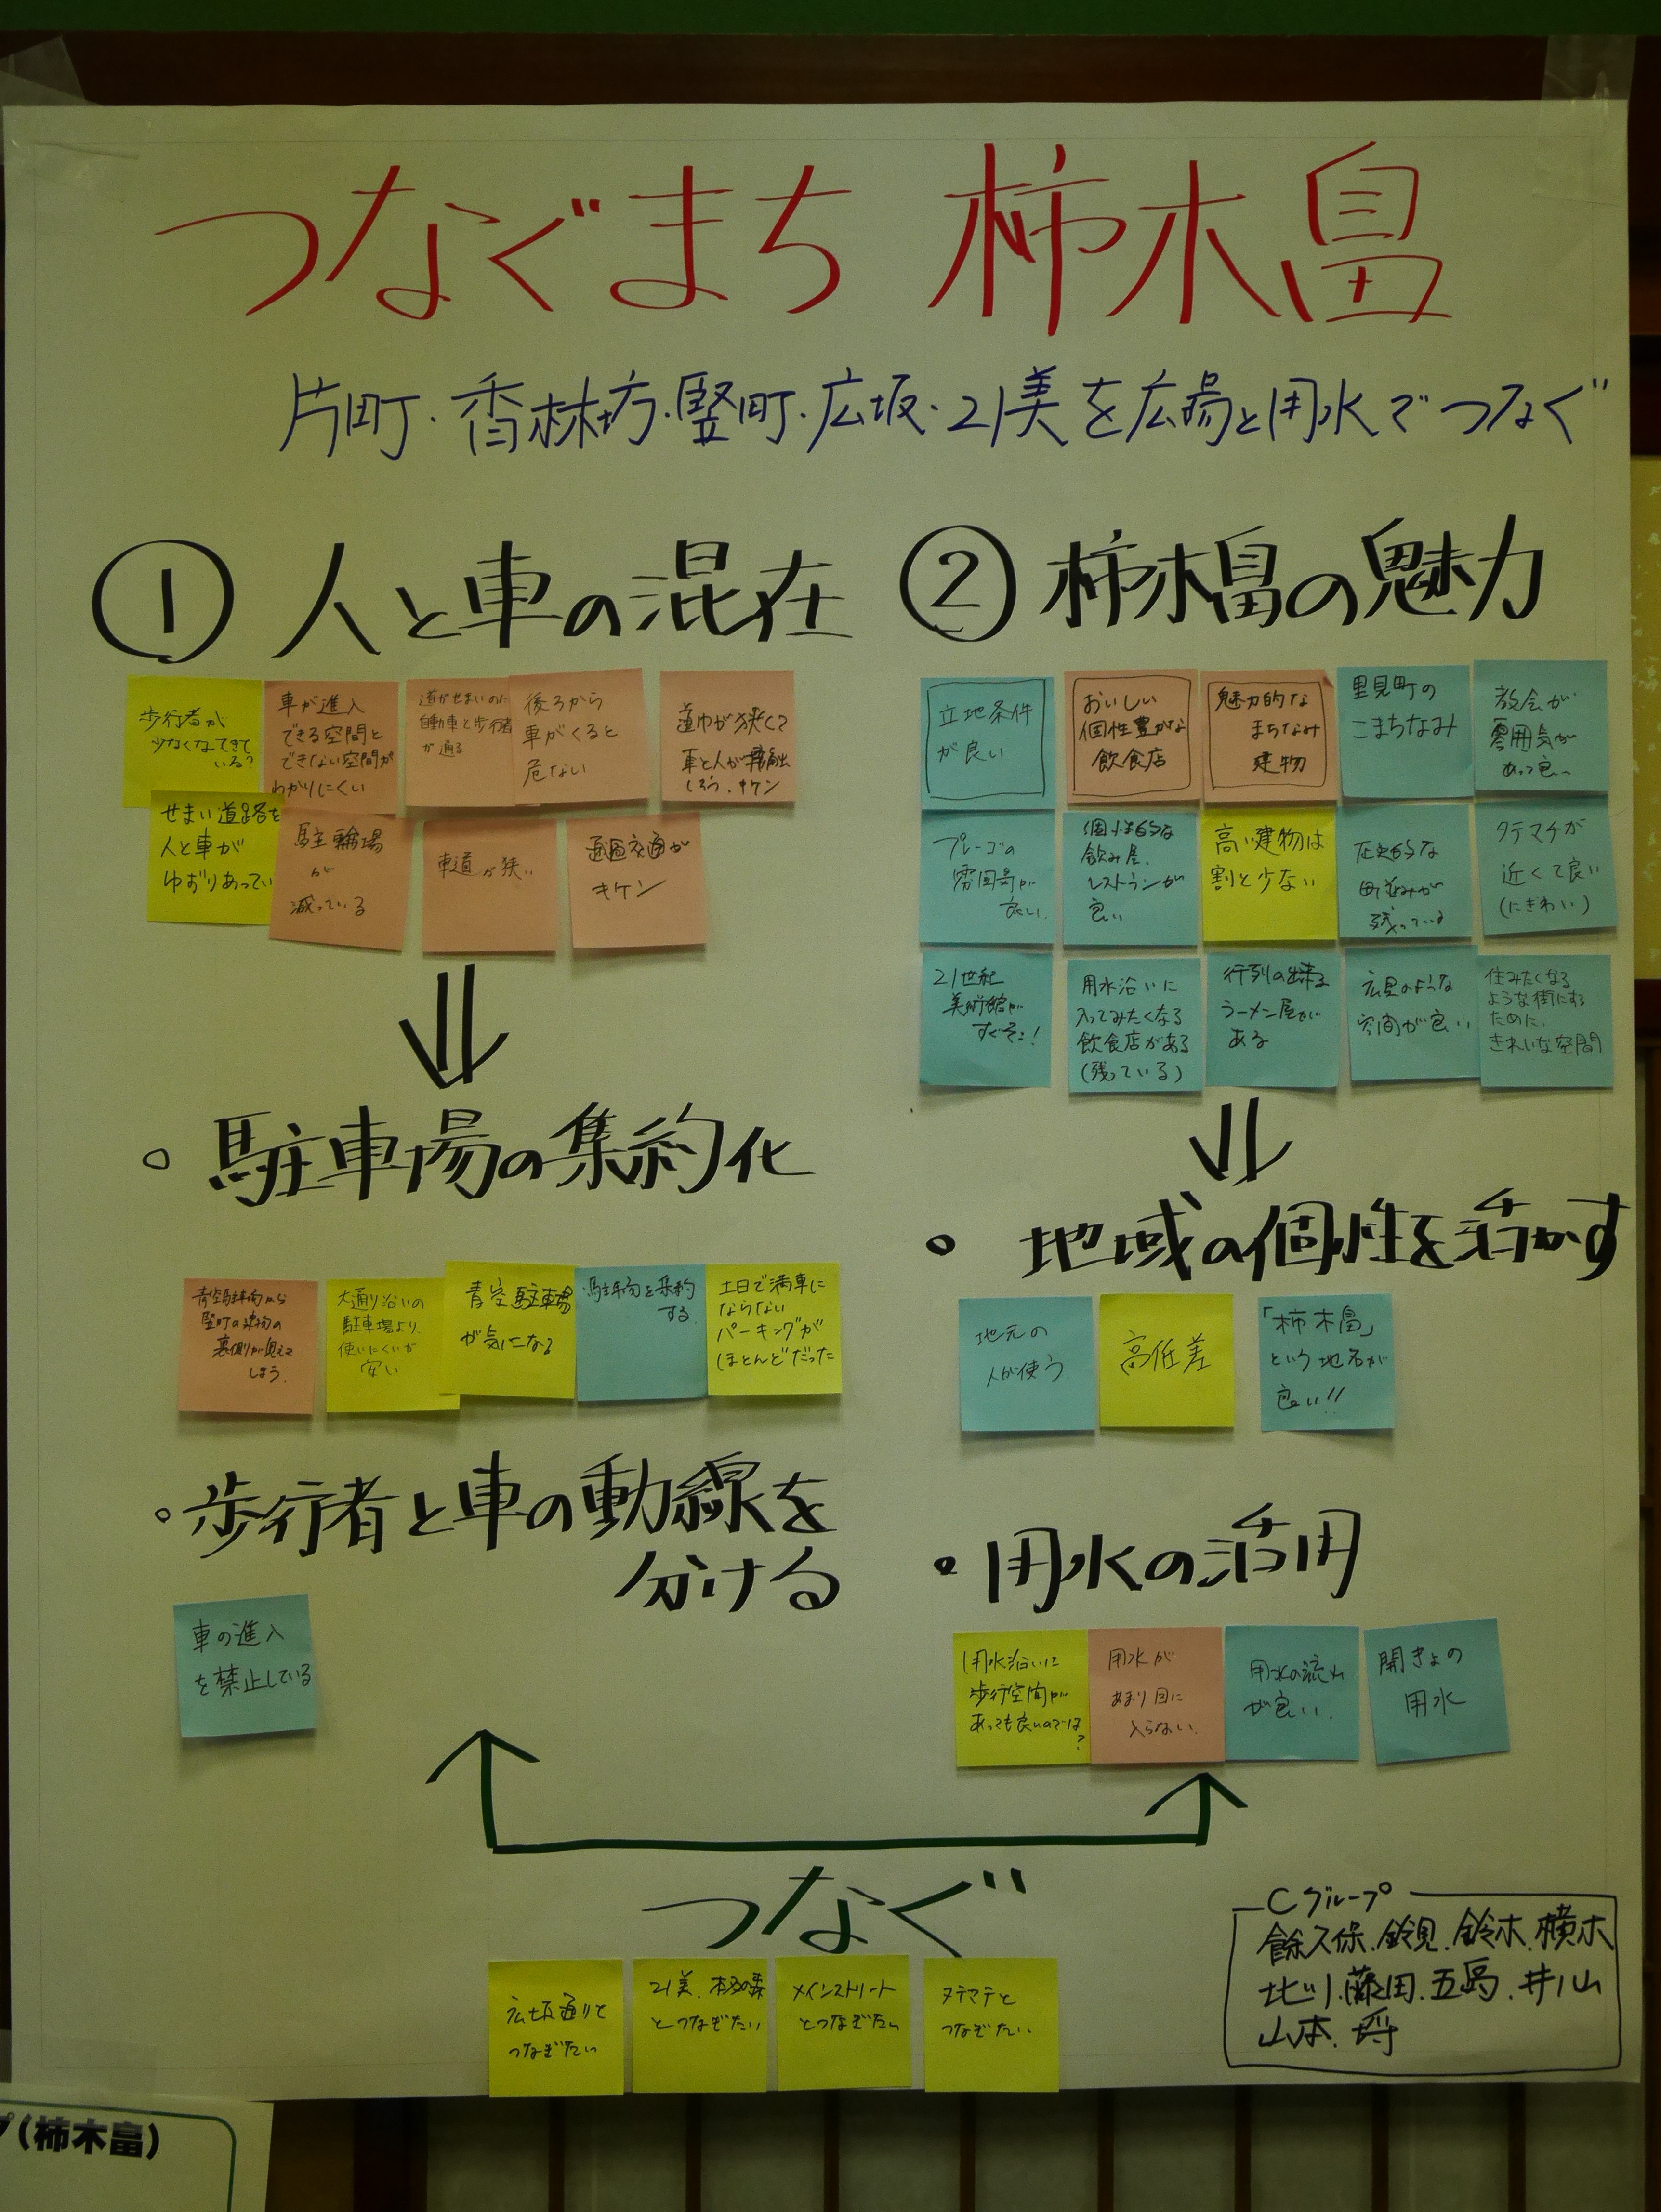 つなぐまち 柿木畠
片町・香林坊・竪町・広坂・21美を広場と用水でつなぐ
① 人と車の混在
歩行者が
少なくなってきて
いる?
車が進入
できる空間と
できない空間が
わかりにくい
道がせまいのに
自動車と歩行者
が通る
後ろから
車がくると
危ない
道巾が狭くて
車と人が接触
しそう.キケン
せまい道路を
人と車が
ゆずりあってい
駐輪場
が
減っている
車道が狭い
通過交通が
キケン
・駐車場の集約化
青空駐車場から
竪町の建物の
裏側が見えて
しまう.
大通り沿いの
駐車場より
使いにくいが
安い
青空駐車場
が気になる
駐車場を集約
する
土日で満車に
ならない
パーキングが
ほとんどだった
・歩行者と車の動線を
分ける
車の進入
を禁止している
② 柿木畠の魅力
立地条件
が良い
おいしい
個性豊かな
飲食店
魅力的な
まちなみ
建物
里見町の
こまちなみ
教会が
雰囲気が
あって良い
プレーゴの
雰囲気が
良い.
個性的な
飲み屋.
レストランが
良い
高い建物は
割と少ない
歴史的な
町並みが
残っている
タテマチが
近くて良い
(にぎわい)
21世紀
美術館が
すぐそこ!
用水沿いに
入ってみたくなる
飲食店がある
(残っている)
行列の出来る
ラーメン屋が
ある
広見のような
空間が良い
住みたくなる
ような街にする
ために.
きれいな空間
・地域の個性を活かす
地元の
人が使う.
高低差
「柿木畠」
という地名が
良い!!
・用水の活用
用水沿いに
歩行空間が
あっても良いのでは
?
用水が
あまり目に
入らない.
用水の流れ
が良い.
開きょの
用水
つなぐ
広坂通りと
つなぎたい
21美、本多の森
とつなぎたい
メインストリート
とつなぎたい
タテマチと
つなぎたい
Cグループ
餘久保.鈴見.鈴木.横木
北川.藤田.五嶋.井山
山本.
プ(柿木畠)